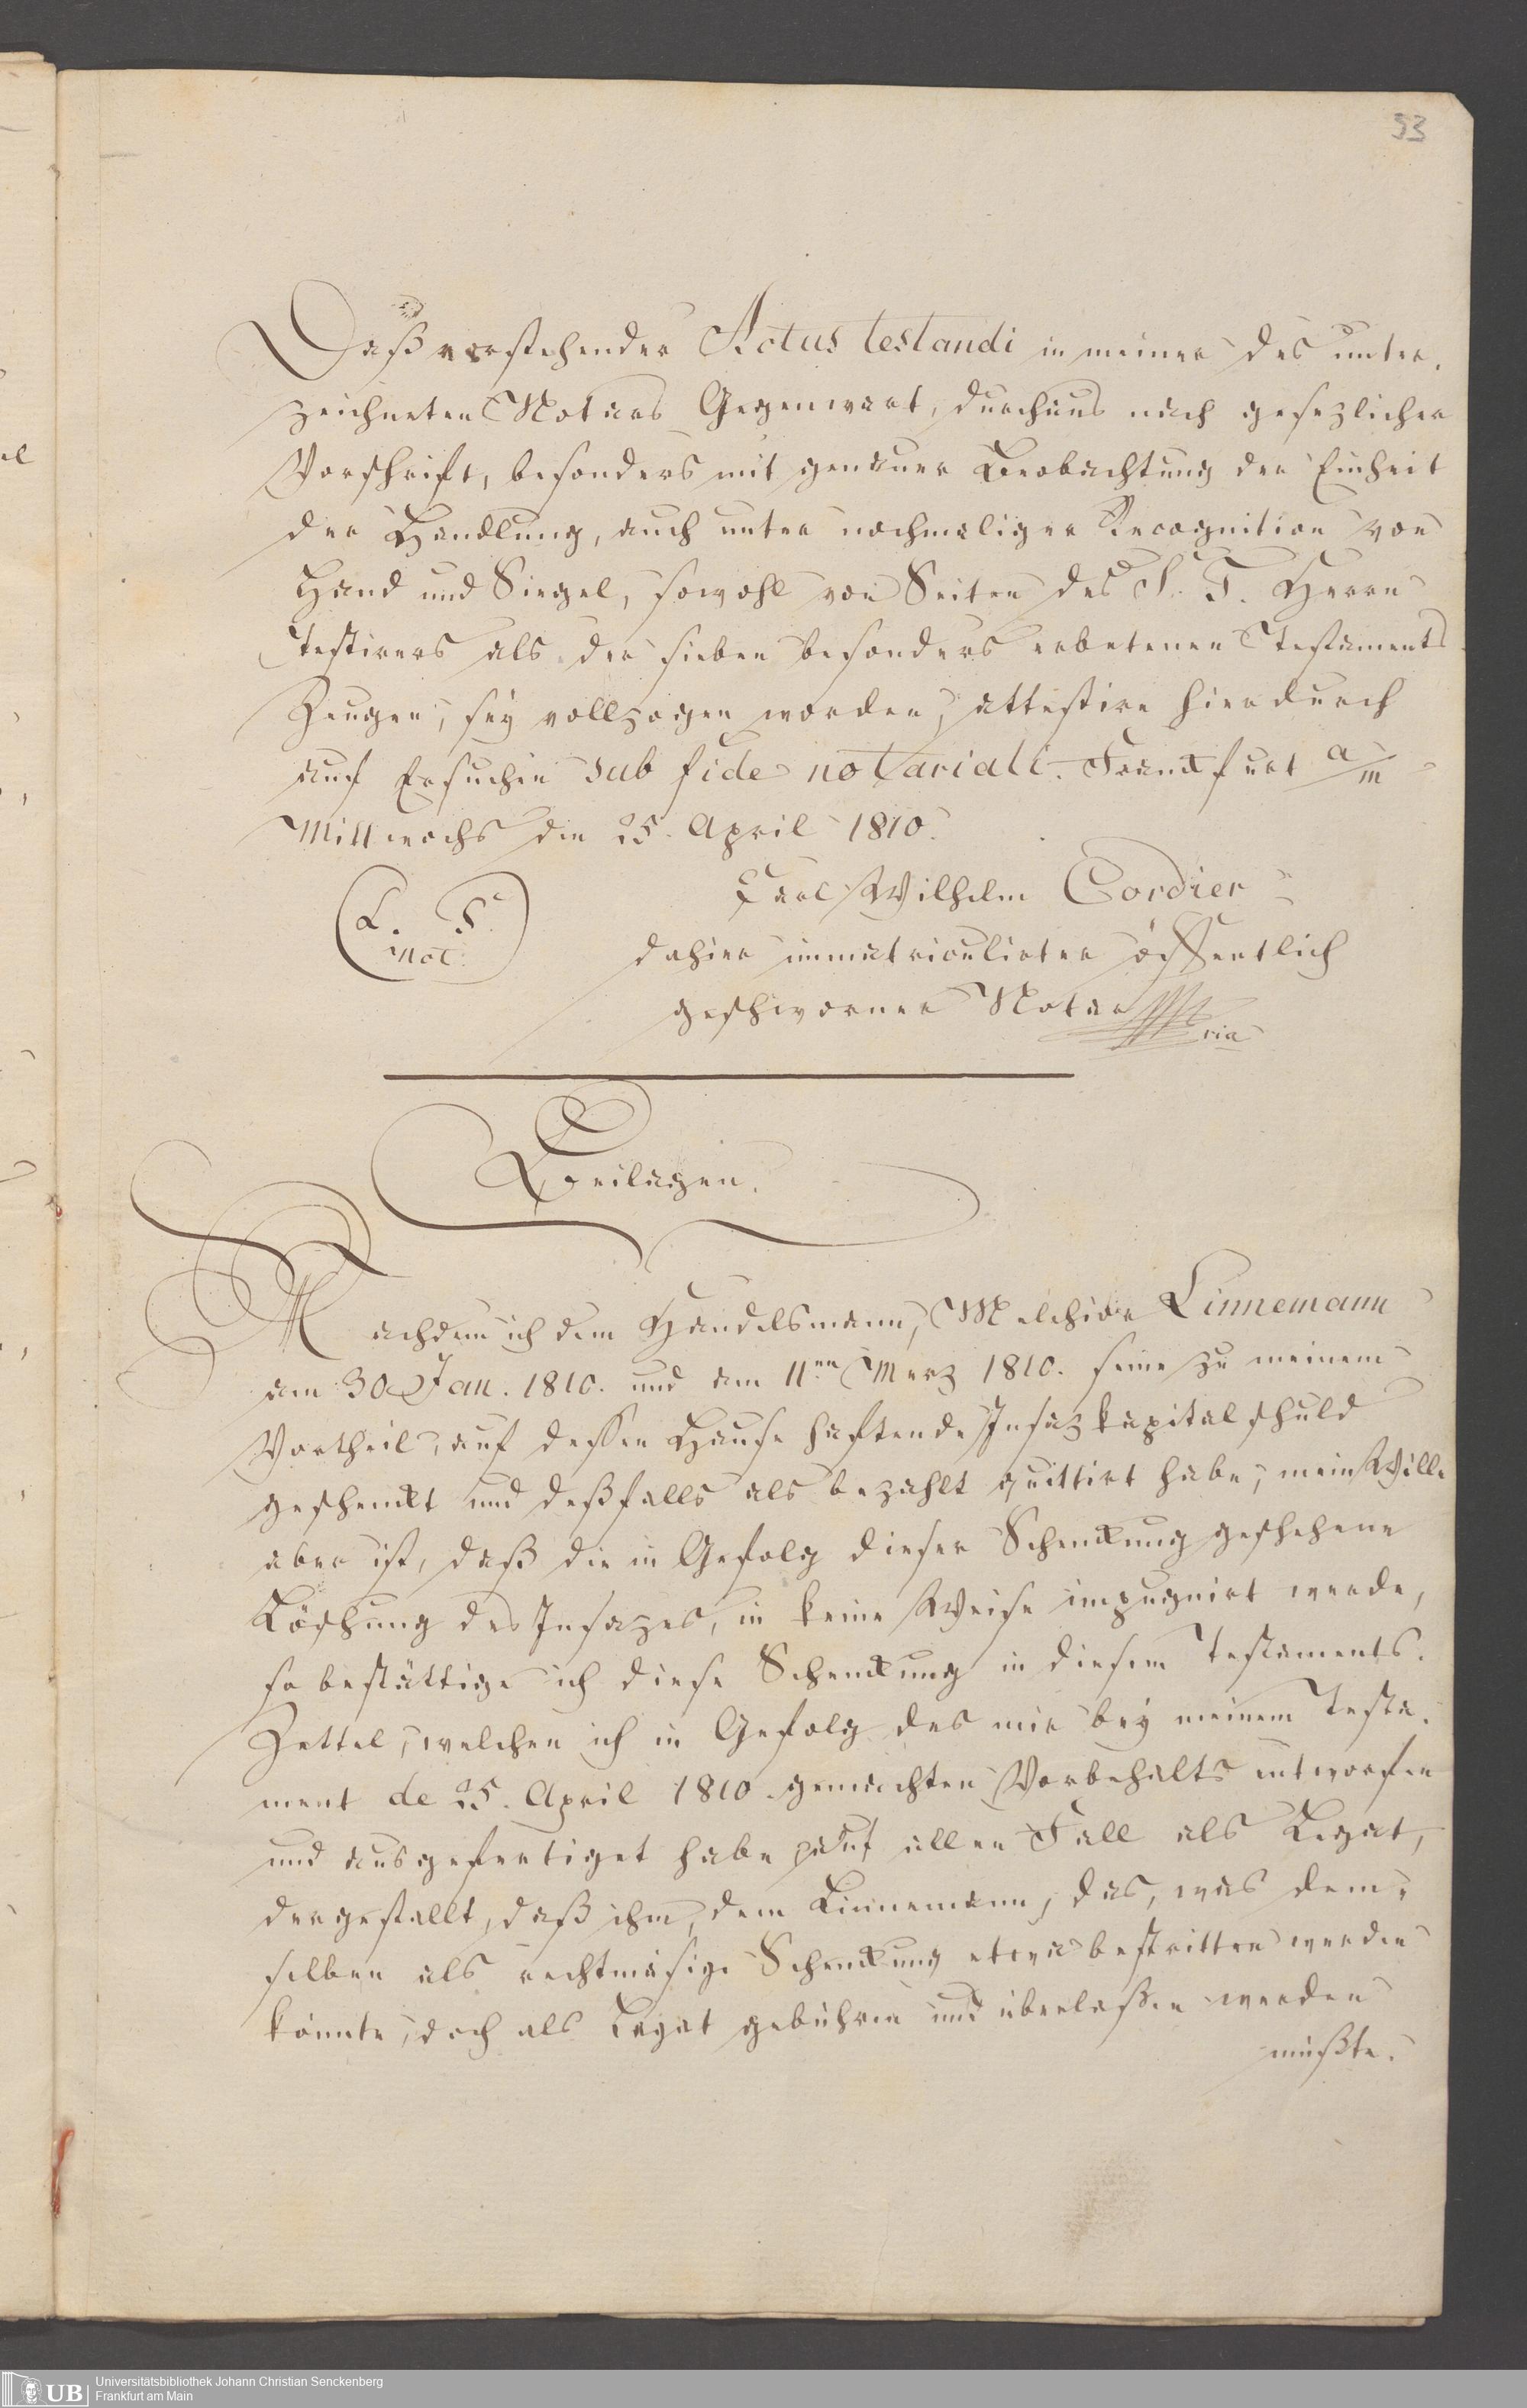 93
Daß vorstehender Actus testandi in meiner des unter-
zeichneten Notars Gegenwart, durchaus nach gesezlicher
Vorschrift, besonders mit genauer Beobachtung der Einheit
der Handlung, auch unter nochmaliger Recognition von
Hand und Siegel, sowohl von Seiten des S. T. Herrn
Testirers als der sieben besonders erbetenen Testaments
Zeugen, sey vollzogen worden, attestire hierdurch
auf Ersuchen sub fide notariali. Frankfurt a/m
Mittwochs den 25. April 1810.
Carl Wilhelm Cordier
(L. S. not.)
dahier immatriculirter öffentlich
geschworner Notar
Beilagen.
Nachdem ich dem Handelsmann, Melchior Linnemann
am 30 Jan. 1810. und am 11ten Merz 1810. seine zu meinem
Vortheil, auf dessen Hause haftende Insazkapitalschuld
geschenkt und deßfalls als bezahlt quittirt habe, mein Wille
aber ist, daß die in Gefolg dieser Schenkung geschehene
Löschung des Insazes, in keine Weise impugnirt werde,
so bestättige ich diese Schenkung in diesem Testaments-
Zettel, welchen ich in Gefolg des mir bey meinem Testa-
ment de 25. April 1810. gemachten Vorbehalts entworfen
und ausgefertiget habe auf allen Fall als Legat,
dergestallt, daß ihm, dem Linnemann, das, was dem-
selben als rechtmäsige Schenkung etwa bestritten werden
könnte, doch als Legat gebühren und überlassen werden
müßte.
Universitätsbibliothek Johann Christian Senckenberg
Frankfurt am Main
UB